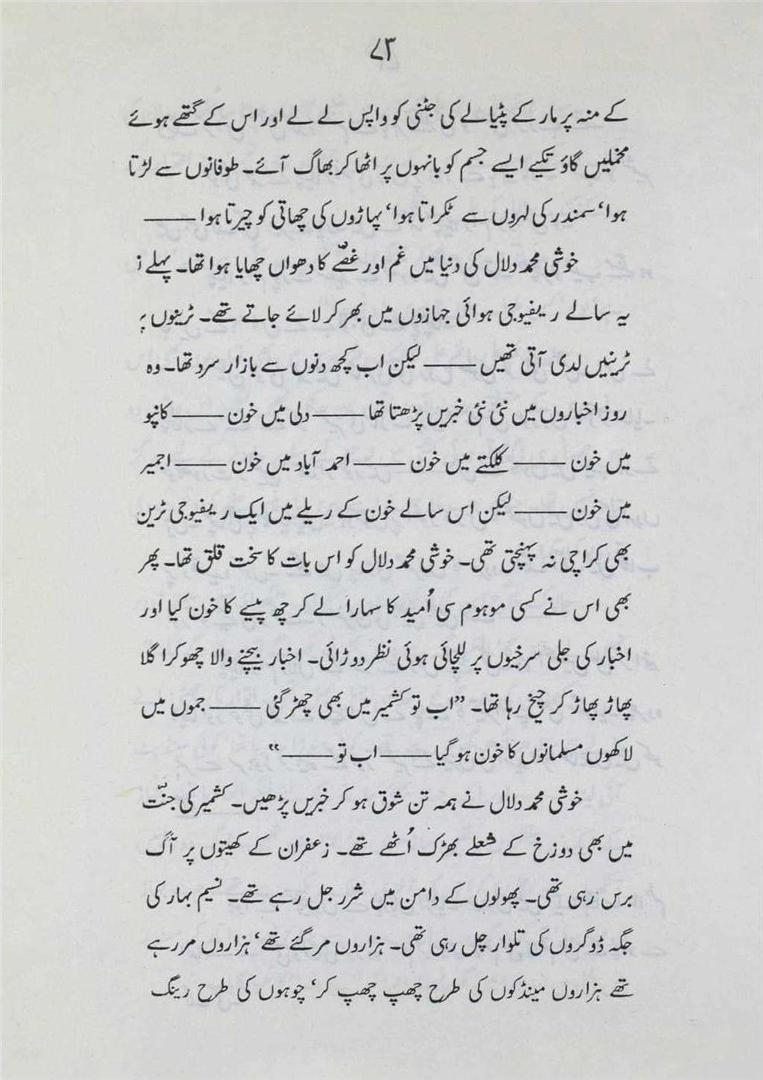 ۷۳
کے منہ پر مار کے پٹیالے کی جٹنی کو واپس لے لے اور اس کے گتھے ہوئے
مخملیں گاؤ تکیے ایسے جسم کو بانہوں پر اٹھا کر بھاگ آئے۔ طوفانوں سے لڑتا
ہوا، سمندر کی لہروں سے ٹکراتا ہوا، پہاڑوں کی چھاتی کو چیرتا ہوا ———
خوشی محمد دلال کی دنیا میں غم اور غصّے کا دھواں چھایا ہوا تھا۔ پہلے
یہ سالے ریفیوجی ہوائی جہازوں میں بھر کر لائے جاتے تھے۔ ٹرینوں پر
ٹرینیں لدی آتی تھیں ——— لیکن اب کچھ دنوں سے بازار سرد تھا۔ وہ
روز اخباروں میں نئی نئی خبریں پڑھتا تھا ——— دلی میں خون ——— کانپو
میں خون ——— کلکتے میں خون ——— احمد آباد میں خون ——— اجمیر
میں خون ——— لیکن اس سالے خون کے ریلے میں ایک ریفیوجی ٹرین
بھی کراچی نہ پہنچتی تھی۔ خوشی محمد دلال کو اس بات کا سخت قلق تھا۔ پھر
بھی اس نے کسی موہوم سی اُمید کا سہارا لے کر چھ پیسے کا خون کیا اور
اخبار کی جلی سرخیوں پر للچائی ہوئی نظر دوڑائی۔ اخبار بیچنے والا چھوکرا گلا
پھاڑ پھاڑ کر چیخ رہا تھا۔ ”اب تو کشمیر میں بھی چھڑ گئی ——— جموں میں
لاکھوں مسلمانوں کا خون ہو گیا ——— اب تو ———“
خوشی محمد دلال نے ہمہ تن شوق ہو کر خبریں پڑھیں۔ کشمیر کی جنّت
میں بھی دوزخ کے شعلے بھڑک اُٹھے تھے۔ زعفران کے کھیتوں پر آگ
برس رہی تھی۔ پھولوں کے دامن میں شرر جل رہے تھے۔ نسیم بہار کی
جگہ ڈوگروں کی تلوار چل رہی تھی۔ ہزاروں مر گئے تھے، ہزاروں مر رہے
تھے ہزاروں مینڈکوں کی طرح چھپ چھپ کر، چوہوں کی طرح رینگ